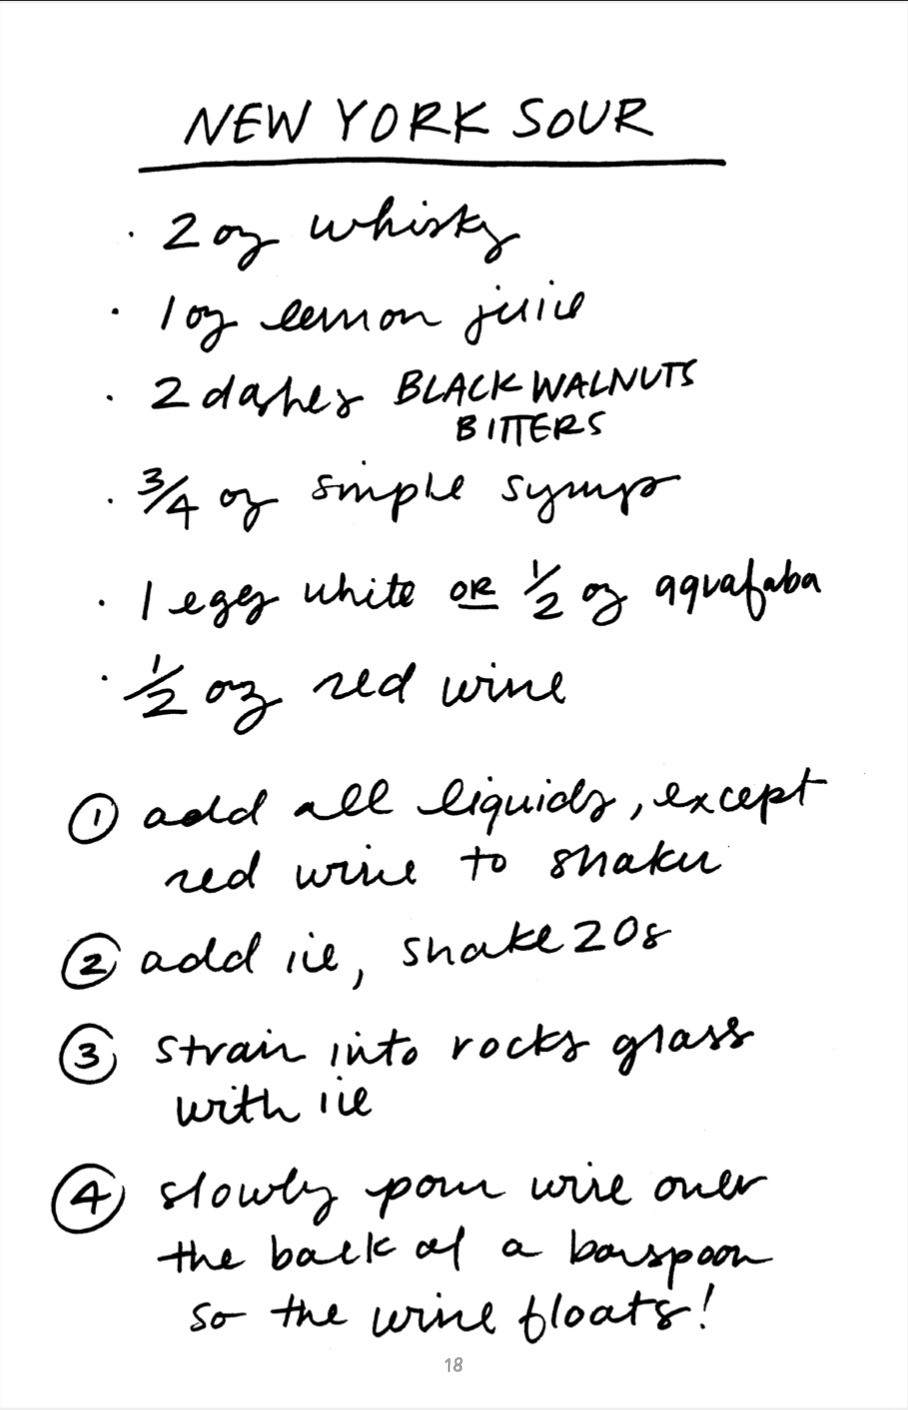 NEW YORK SOUR
· 2 oz whisky
· 1 oz lemon juice
· 2 dashes BLACK WALNUTS
BITTERS
· 3/4 oz simple syrup
· 1 egg white OR 1/2 oz aquafaba
· 1/2 oz red wine
① add all liquids, except
red wine to shaker
② add ice, shake 20s
③ strain into rocks glass
with ice
④ slowly pour wine over
the back of a barspoon
so the wine floats!
18